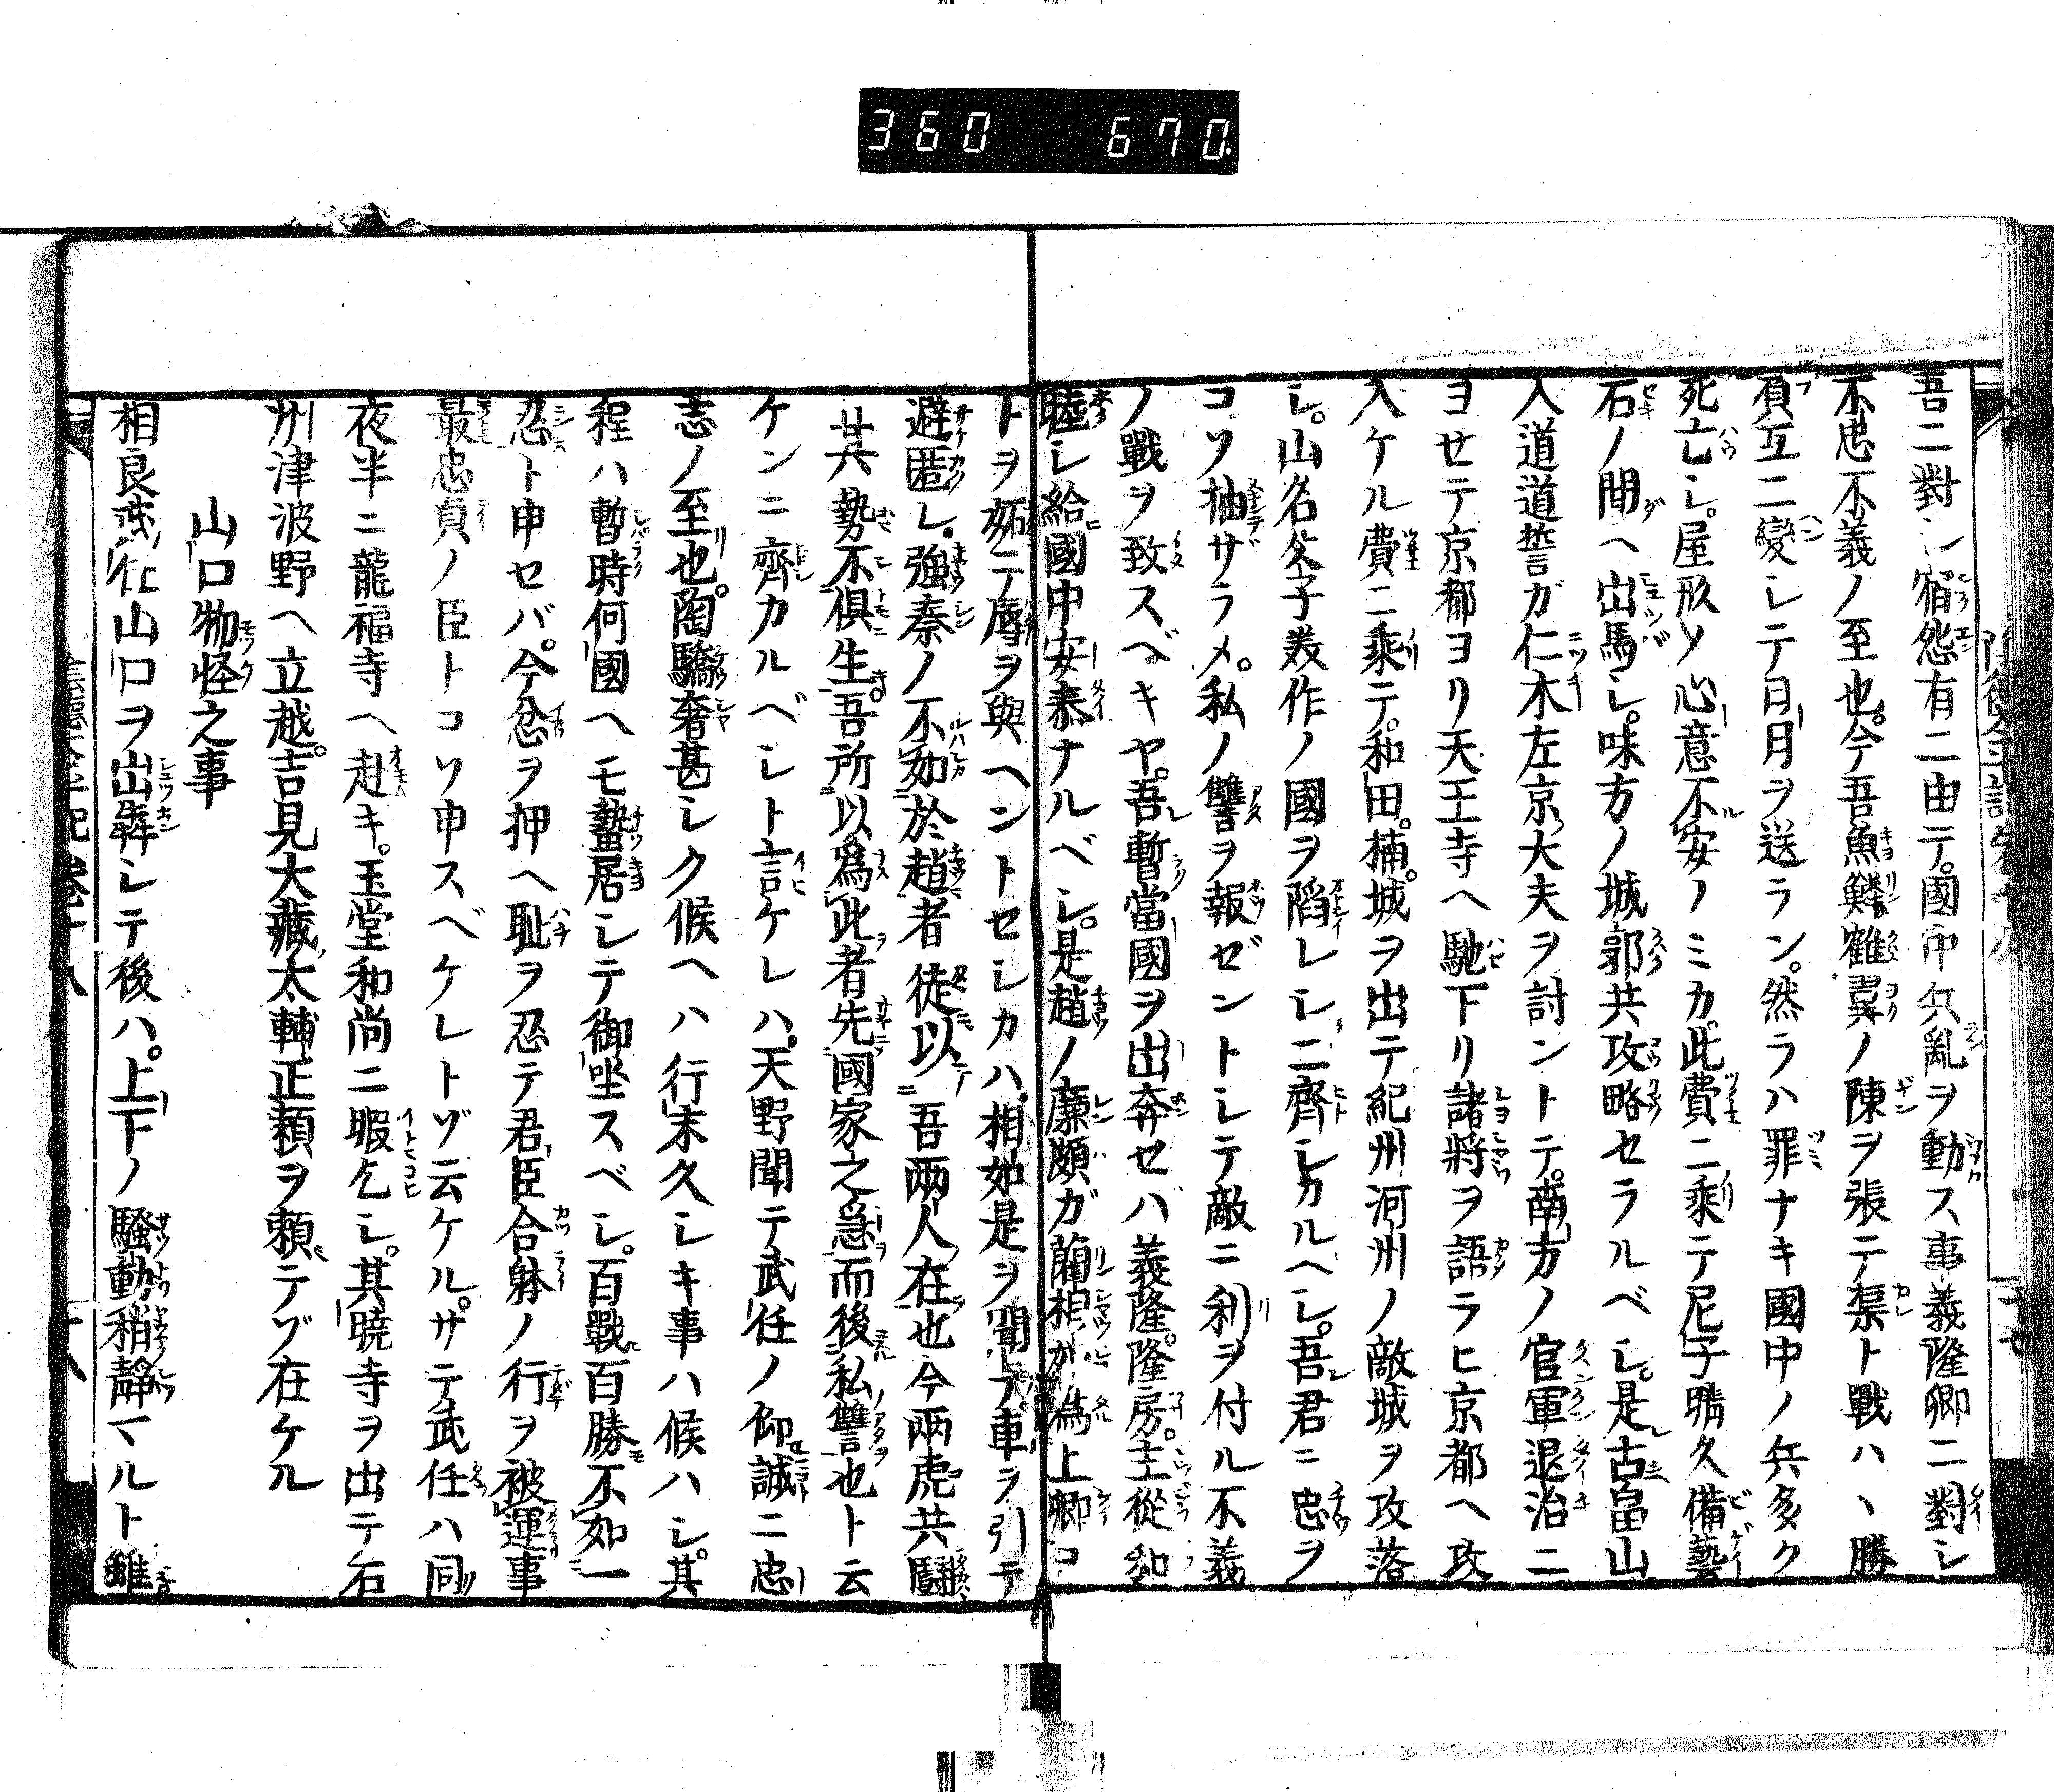 360 670.
吾ニ對シ宿怨有ニ由テ。國中兵亂ヲ動ス事義隆卿ニ對シ
不忠不義ノ至也。今吾魚鱗寉翼ノ陳ヲ張テ渠ト戰ハヽ勝
負互ニ變シテ日月ヲ送ラン。然ラハ罪ナキ國中ノ兵多ク
死亡シ。屋形ノ心意不安ノミカ。此費ニ乘テ尼子晴久備藝
石ノ間ヘ出馬シ。味方ノ城郭共攻略セラルベシ。是古畠山
入道道誓ガ仁木左京大夫ヲ討ントテ。南方ノ官軍退治ニ
ヨセテ京都ヨリ天王寺ヘ馳下リ諸將ヲ語ラヒ京都ヘ攻
入ケル費ニ乘テ。和田。楠。城ヲ出テ紀州河州ノ敵城ヲ攻落
シ。山名父子美作ノ國ヲ陷レシニ齊シカルヘシ。吾君ニ忠ヲ
コソ抽サラメ。私ノ讐ヲ報ゼントシテ敵ニ利ヲ付ル不義
ノ戰ヲ致スベキヤ。吾暫當國ヲ出奔セバ義隆。隆房。主從和
睦シ給國中安泰ナルベシ。是趙ノ廉頗ガ藺相如爲上卿コ
トヲ妬テ辱ヲ與ヘントセシカハ。相如是ヲ聞テ車ヲ引テ
避匿レ。強秦ノ不如於趙者徒以吾兩人在也今兩虎共鬪
其勢不俱生。吾所以爲此者先國家之急而後私讐也ト云
ケンニ齊カルベシト言ケレハ。天野聞テ武任ノ仰誠ニ忠
志ノ至也。陶驕奢甚シク候ヘハ行末久シキ事ハ候ハシ。其
程ハ暫時何國ヘモ蟄居シテ御坐スベシ。百戰百勝不如一
忍ト申セバ。今忿ヲ押ヘ恥ヲ忍テ君臣合躰ノ行ヲ被運事
最忠貞ノ臣トコソ申スベケレトゾ云ケル。サテ武任ハ同
夜半ニ龍福寺ヘ赴キ。玉堂和尚ニ暇乞シ。其曉寺ヲ出テ石
州津波野ヘ立越。吉見大藏太輔正頼ヲ頼テゾ在ケル
山口物怪之事
相良武任山口ヲ出奔シテ後ハ。上下ノ騷動稍靜マルト雖